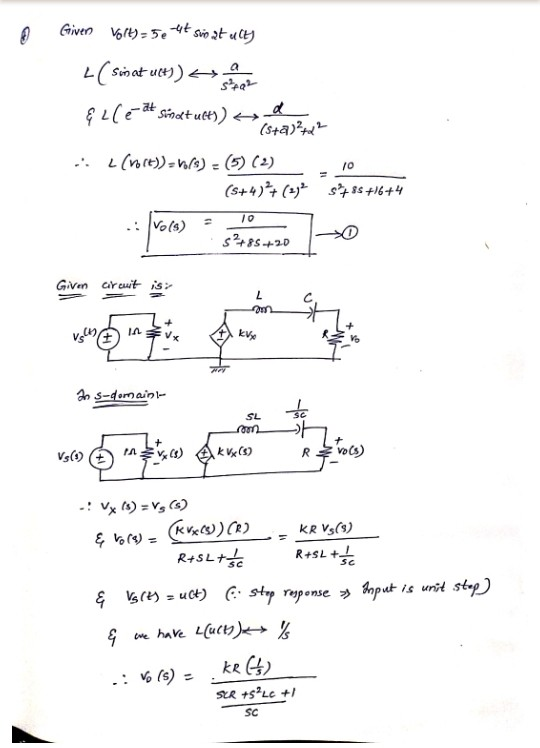 Given v₀(t) = 5e^-4t sin 2t u(t)
L(sin at u(t)) ⟷ a/(s²+a²)
& L(e^-at sin αt u(t)) ⟷ α/((s+a)²+α²)
∴ L(v₀(t)) = V₀(s) = (5)(2)/((s+4)²+(2)²) = 10/(s²+8s+16+4)
∴ V₀(s) = 10/(s²+8s+20) → ①
Given circuit is:-
L C
Vs(t) + - 1Ω + Vx - + - kVx R + V₀ -
In s-domain:-
SL 1/sc
Vs(s) + - 1Ω + Vx(s) - + - kVx(s) R + V₀(s) -
∵ Vx(s) = Vs(s)
& V₀(s) = (kVx(s))(R)/(R+SL+1/sc) = KR Vs(s)/(R+SL+1/sc)
& Vs(t) = u(t) (∵ step response ⇒ Input is unit step)
& we have L(u(t)) ⟷ 1/s
∴ V₀(s) = KR(1/s)/((SCR+S²LC+1)/SC)